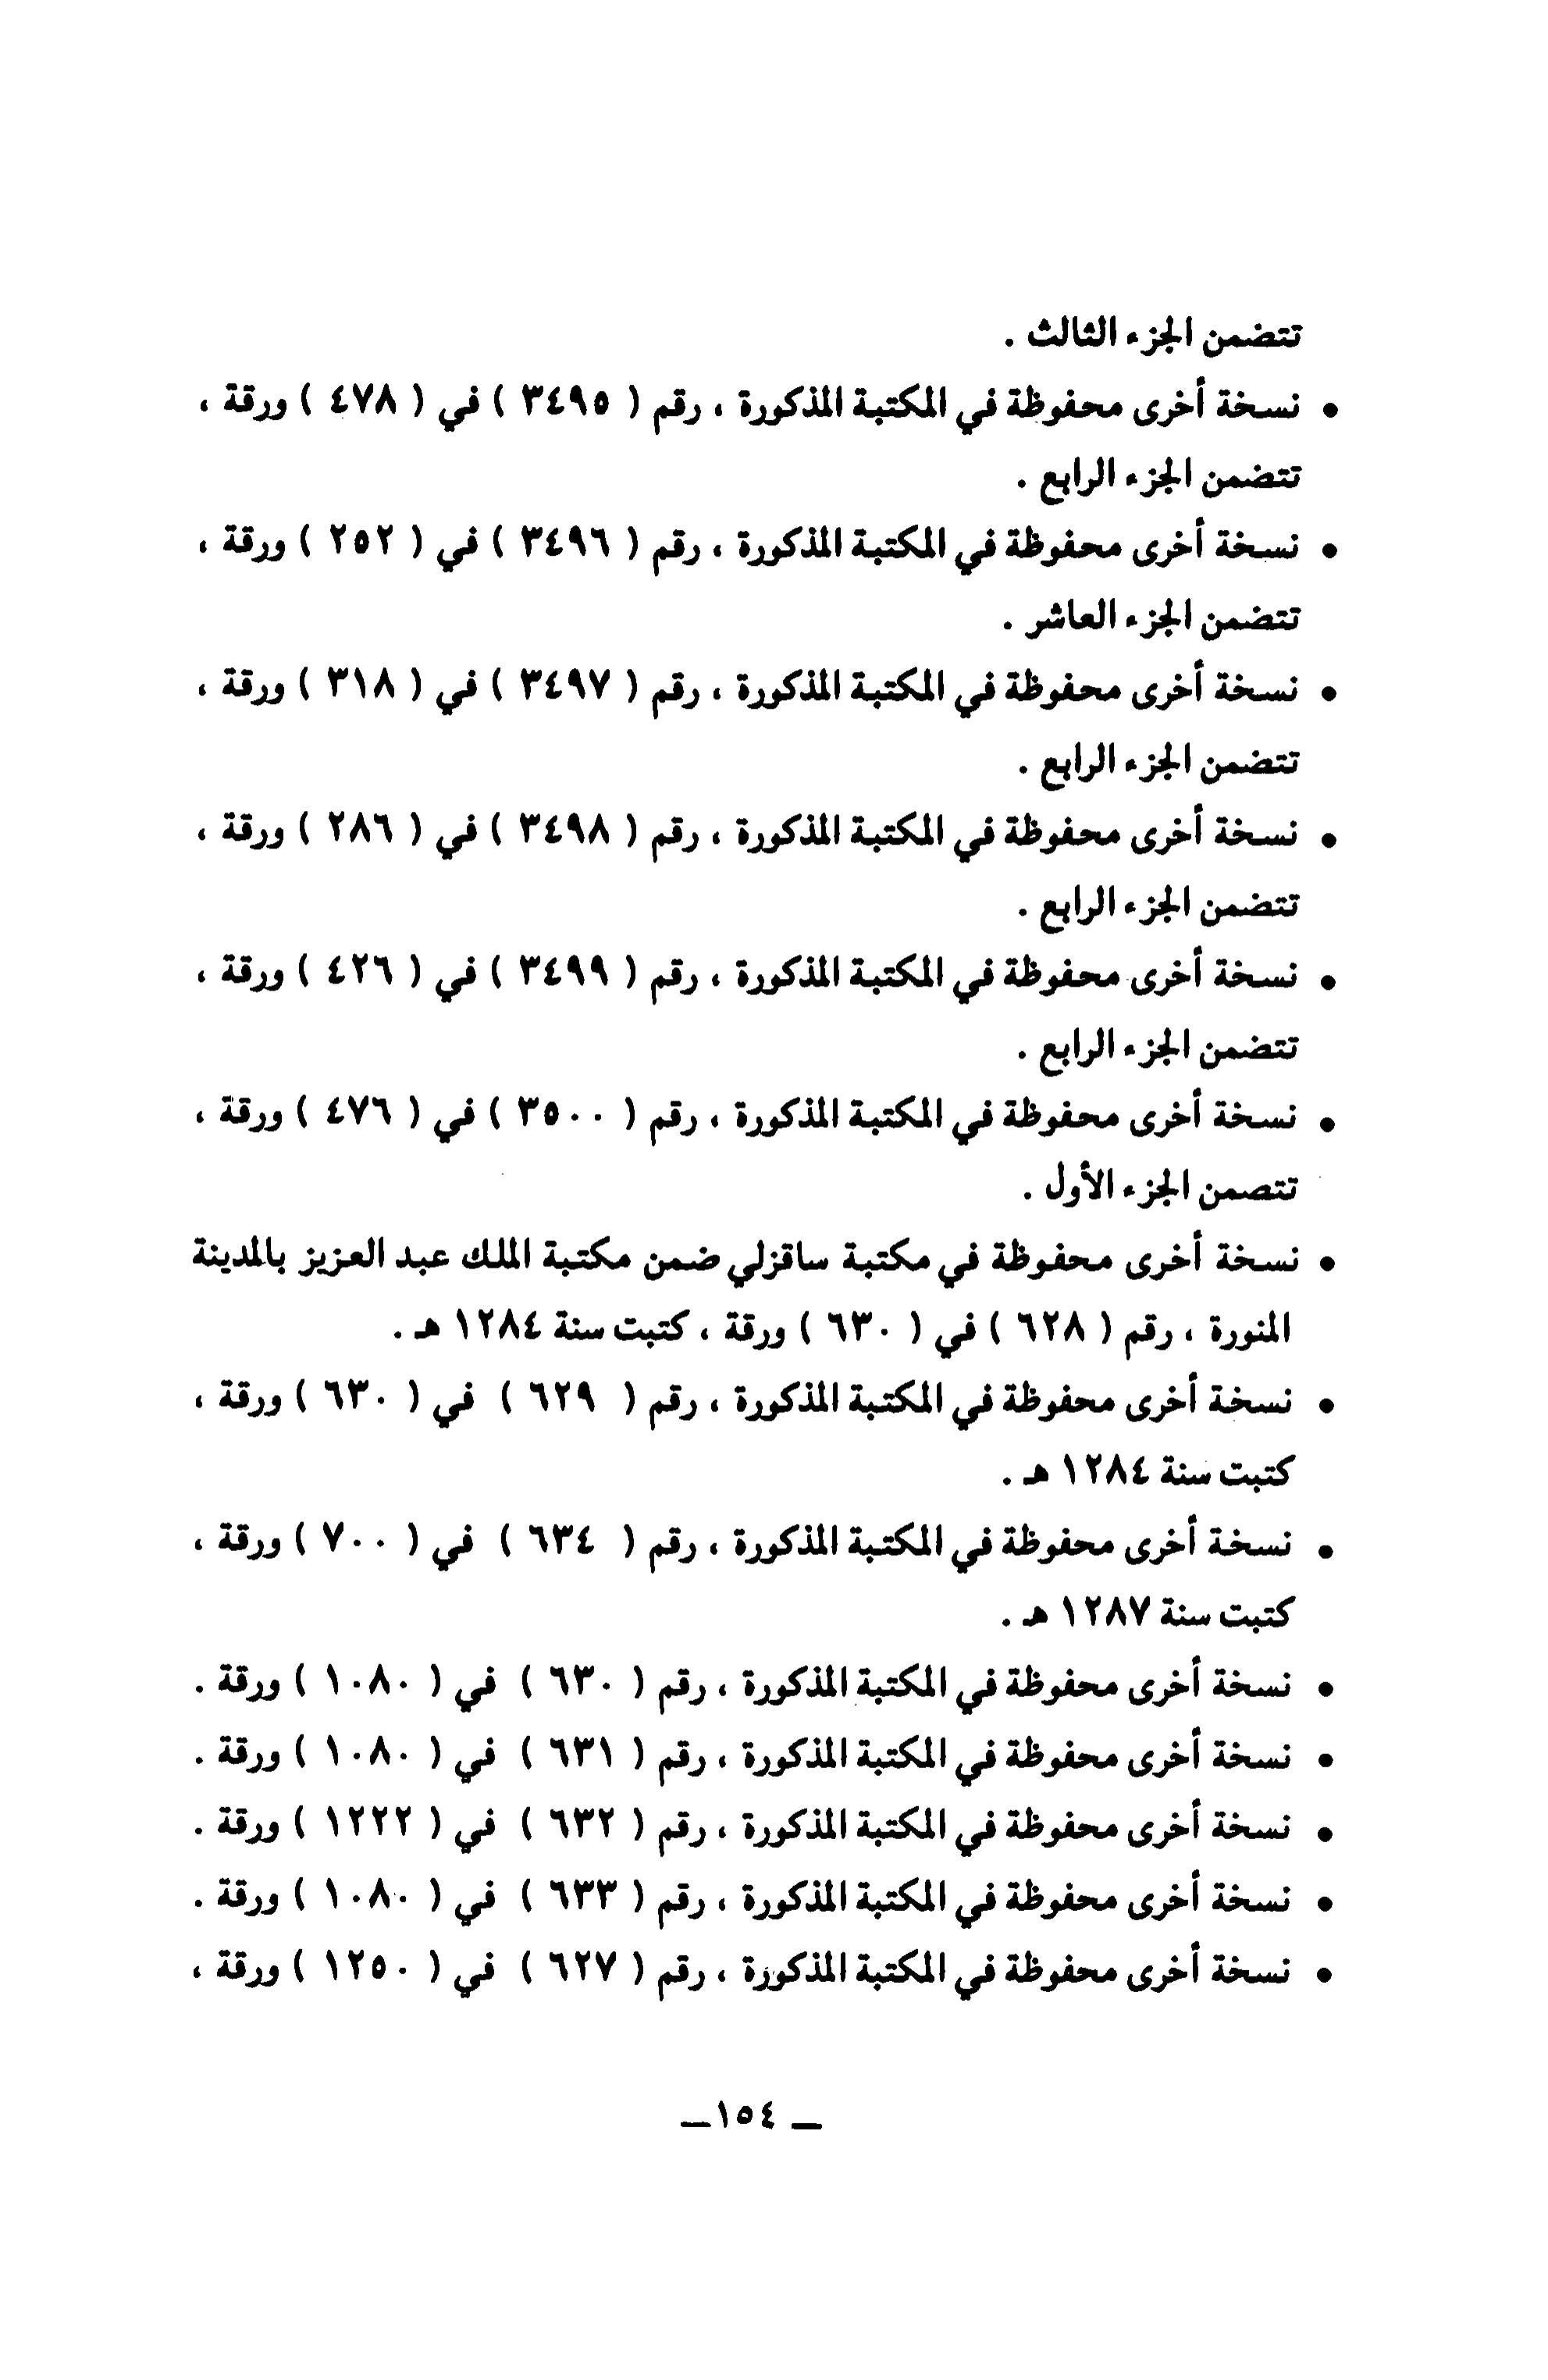 تتضمن الجزء الثالث .
• نسخة أخرى محفوظة في المكتبة المذكورة ، رقم ( ٣٤٩٥ ) في ( ٤٧٨ ) ورقة ،
تتضمن الجزء الرابع .
• نسخة أخرى محفوظة في المكتبة المذكورة ، رقم ( ٣٤٩٦ ) في ( ٢٥٢ ) ورقة ،
تتضمن الجزء العاشر .
• نسخة أخرى محفوظة في المكتبة المذكورة ، رقم ( ٣٤٩٧ ) في ( ٣١٨ ) ورقة ،
تتضمن الجزء الرابع .
• نسخة أخرى محفوظة في المكتبة المذكورة ، رقم ( ٣٤٩٨ ) في ( ٢٨٦ ) ورقة ،
تتضمن الجزء الرابع .
• نسخة أخرى محفوظة في المكتبة المذكورة ، رقم ( ٣٤٩٩ ) في ( ٤٢٦ ) ورقة ،
تتضمن الجزء الرابع .
• نسخة أخرى محفوظة في المكتبة المذكورة ، رقم ( ٣٥٠٠ ) في ( ٤٧٦ ) ورقة ،
تتصمن الجزء الأول .
• نسخة أخرى محفوظة في مكتبة ساقزلي ضمن مكتبة الملك عبد العزيز بالمدينة
المنورة ، رقم ( ٦٢٨ ) في ( ٦٣٠ ) ورقة ، كتبت سنة ١٢٨٤ هـ .
• نسخة أخرى محفوظة في المكتبة المذكورة ، رقم ( ٦٢٩ ) في ( ٦٣٠ ) ورقة ،
كتبت سنة ١٢٨٤ هـ .
• نسخة أخرى محفوظة في المكتبة المذكورة ، رقم ( ٦٣٤ ) في ( ٧٠٠ ) ورقة ،
كتبت سنة ١٢٨٧ هـ .
• نسخة أخرى محفوظة في المكتبة المذكورة ، رقم ( ٦٣٠ ) في ( ١٠٨٠ ) ورقة .
• نسخة أخرى محفوظة في المكتبة المذكورة ، رقم ( ٦٣١ ) في ( ١٠٨٠ ) ورقة .
• نسخة أخرى محفوظة في المكتبة المذكورة ، رقم ( ٦٣٢ ) في ( ١٢٢٢ ) ورقة .
• نسخة أخرى محفوظة في المكتبة المذكورة ، رقم ( ٦٣٣ ) في ( ١٠٨٠ ) ورقة .
• نسخة أخرى محفوظة في المكتبة المذكورة ، رقم ( ٦٢٧ ) في ( ١٢٥٠ ) ورقة ،
ــ ١٥٤ــ